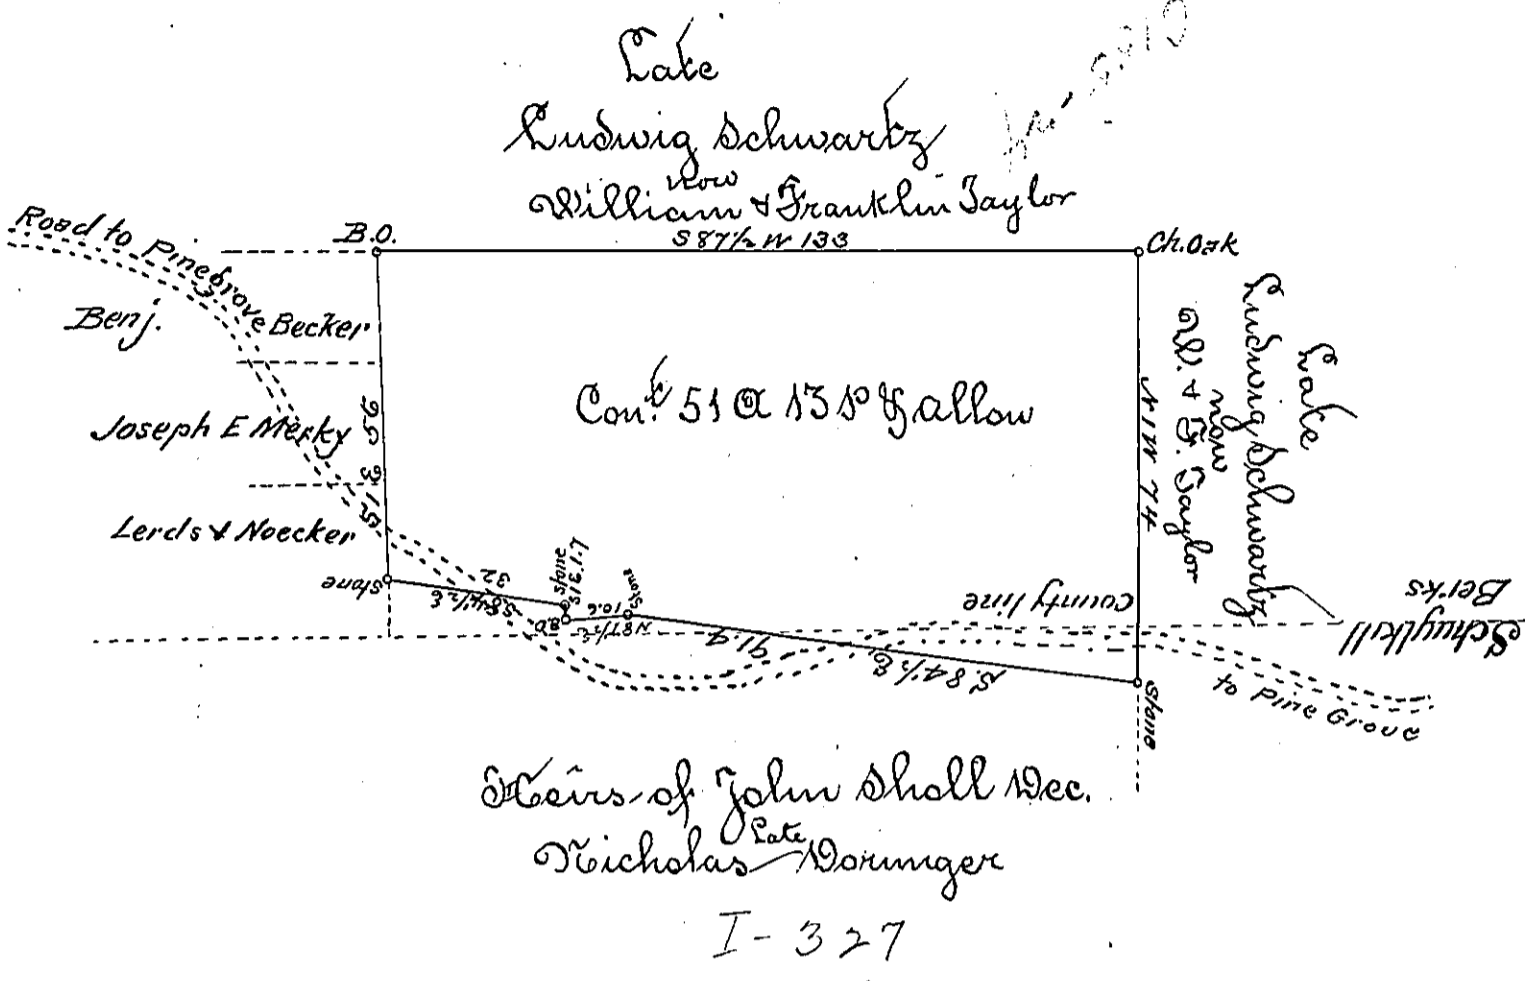 Late
Ludwig Schwartz
now
William & Franklin Taylor
Road to Pinegrove
B.O.
S 87½ W 133
Ch. Oak
Benj. Becker
Joseph E Merky
Lerds & Noecker
Cont. 51 A 13 P & allow
N 1 W 74
Late
Ludwig Schwartz
now
W. & F. Taylor
stone
S. 84½ E
32
stone
S 1 E. 1.7
B.O
N 87½ E
10.6
Stone
91.9
S. 84½ E.
County line
Berks
Schuylkill
stone
to Pine Grove
Heirs of John Sholl Dec.
Late
Nicholas Dorninger
I-327